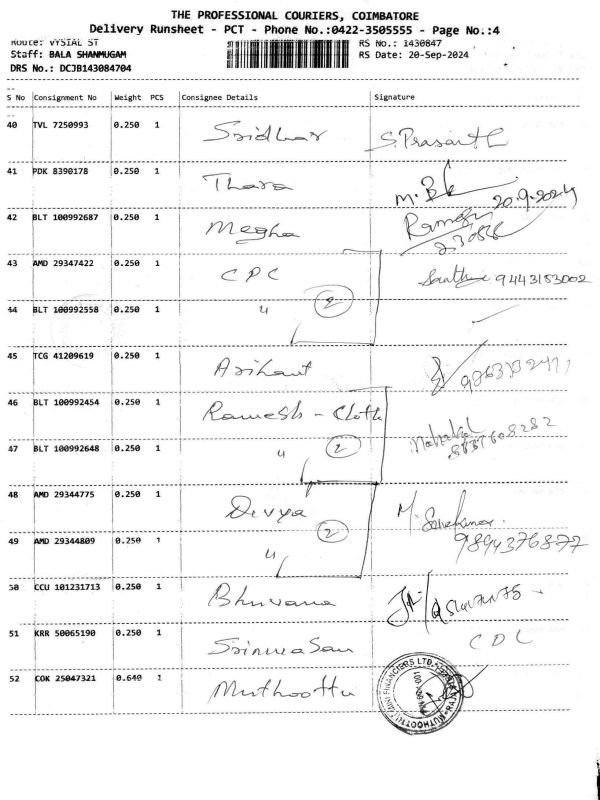 THE PROFESSIONAL COURIERS, COIMBATORE
Delivery Runsheet - PCT - Phone No.:0422-3505555 - Page No.:4
Route: VYSIAL ST RS No.: 1430847
Staff: BALA SHANMUGAM RS Date: 20-Sep-2024
DRS No.: DCJB143084704
S No Consignment No Weight PCS Consignee Details Signature
40 TVL 7250993 0.250 1 Sridhar S. Prasanth
41 PDK 8390178 0.250 1 Thara 20.9.2024
42 BLT 100992687 0.250 1 Megha Ramesh
43 AMD 29347422 0.250 1 CPC 9443153002
44 BLT 100992558 0.250 1 " 2
45 TCG 41209619 0.250 1 Arihant
46 BLT 100992454 0.250 1 Ramesh - Cloth
47 BLT 100992648 0.250 1 " 2
48 AMD 29344775 0.250 1 Divya M.
49 AMD 29344809 0.250 1 " 2 9894376877
50 CCU 101231713 0.250 1 Bhuvana
51 KRR 50065190 0.250 1 Srinivasan CDC
52 COK 25047321 0.640 1 Muthoottu